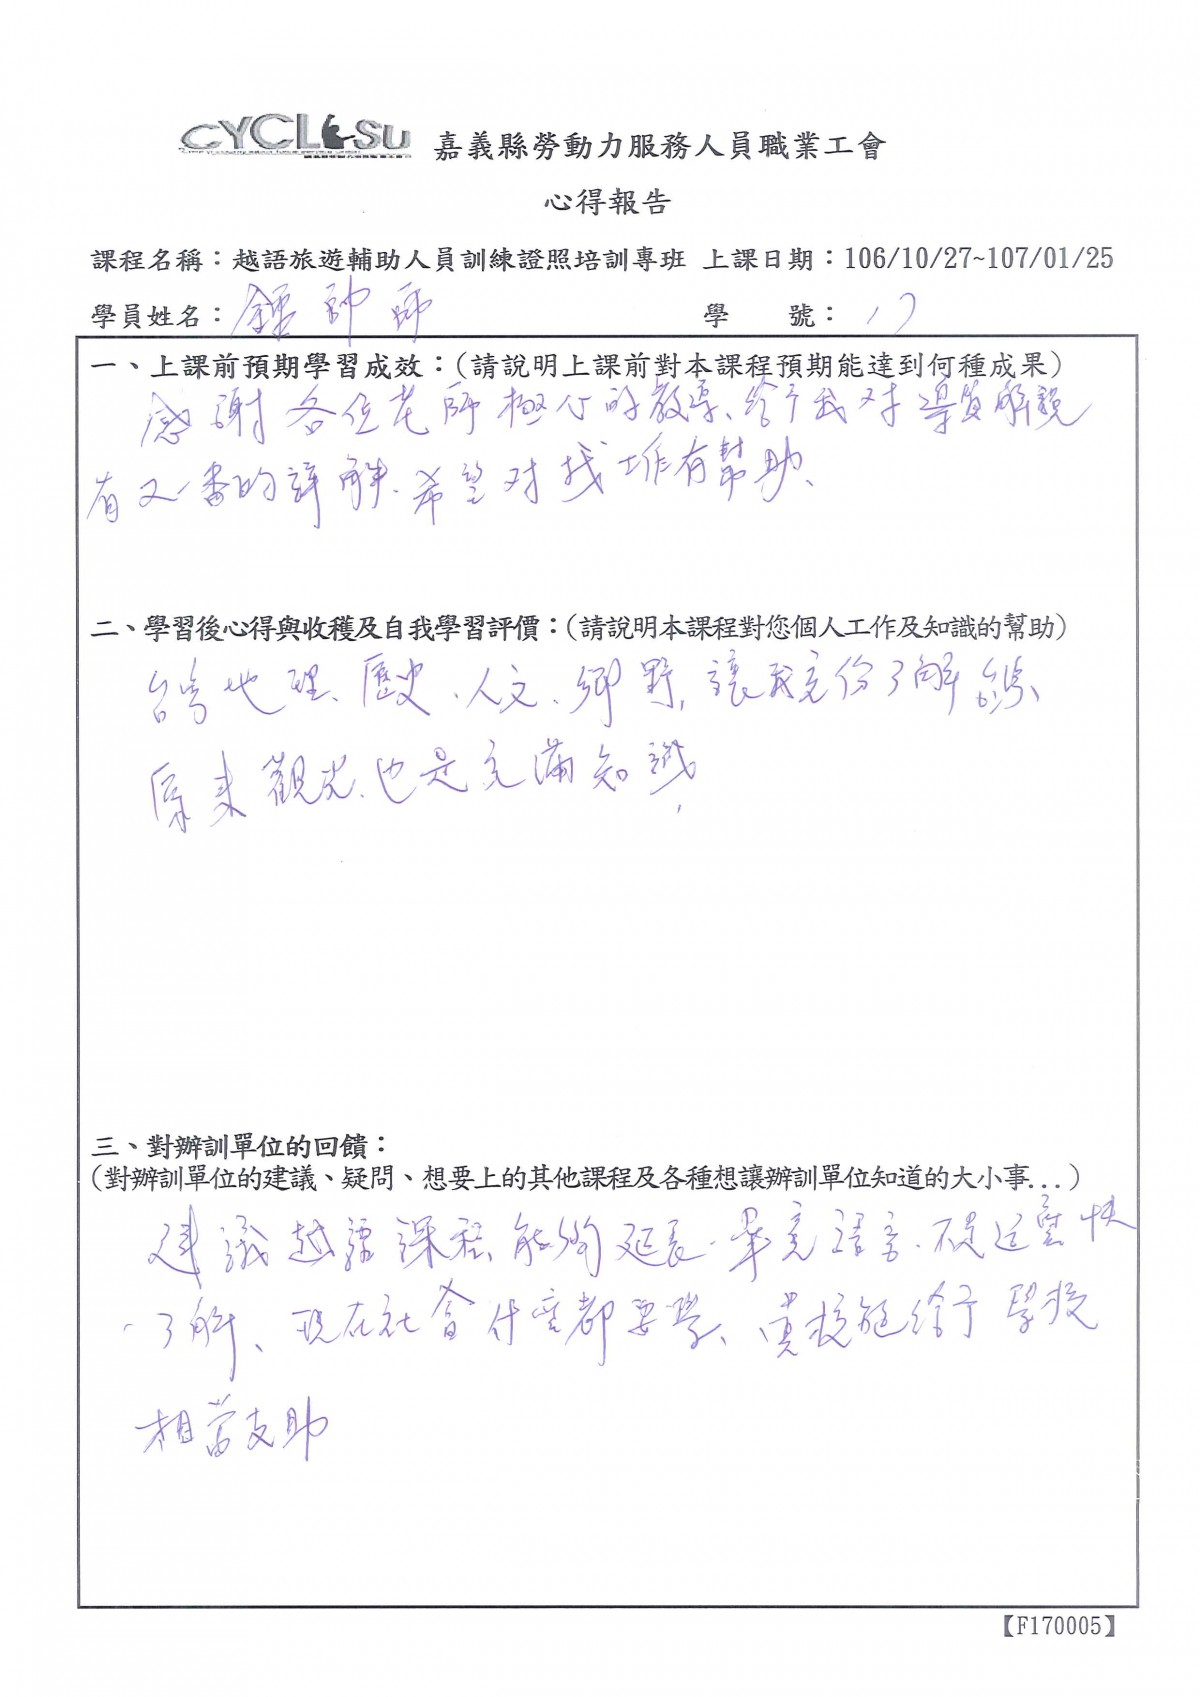 CYCLSU 嘉義縣勞動力服務人員職業工會
心得報告
課程名稱：越語旅遊輔助人員訓練證照培訓專班 上課日期：106/10/27~107/01/25
學員姓名：鍾帥師 學 號：17
一、上課前預期學習成效：(請說明上課前對本課程預期能達到何種成果)
感謝各位老師極心的教導、給予我对導覽解說
有又一番的詳解、希望对找工作有幫助、
二、學習後心得與收穫及自我學習評價：(請說明本課程對您個人工作及知識的幫助)
台湾地理、歷史、人文、鄉野，讓我充份了解台湾、
原來觀光、也是充滿知識，
三、對辦訓單位的回饋：
(對辦訓單位的建議、疑問、想要上的其他課程及各種想讓辦訓單位知道的大小事...)
建議越語課程、能夠延長、畢竟語言、不是這麼快
了解、現在社會什麼都要學、貴校能給予學校
相當支助
【F170005】